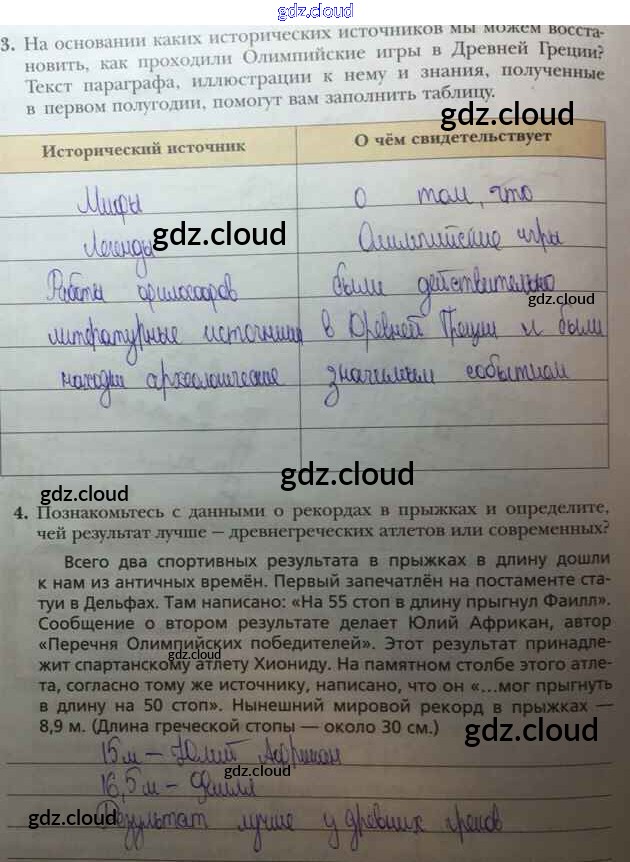 gdz.cloud
3. На основании каких исторических источников мы можем восста-
новить, как проходили Олимпийские игры в Древней Греции?
Текст параграфа, иллюстрации к нему и знания, полученные
в первом полугодии, помогут вам заполнить таблицу.
gdz.cloud
Исторический источник
О чём свидетельствует
Мифы
О том, что
Легенды
gdz.cloud
Олимпийские игры
Работы философов
были действительно
gdz.cloud
литературные источники
в Древней Греции и были
находки археологические
значимым событием
gdz.cloud
gdz.cloud
4. Познакомьтесь с данными о рекордах в прыжках и определите,
чей результат лучше – древнегреческих атлетов или современных?
Всего два спортивных результата в прыжках в длину дошли
к нам из античных времён. Первый запечатлён на постаменте ста-
туи в Дельфах. Там написано: «На 55 стоп в длину прыгнул Фаилл».
Сообщение о втором результате делает Юлий Африкан, автор
«Перечня Олимпийских победителей». Этот результат принадле-
gdz.cloud
жит спартанскому атлету Хиониду. На памятном столбе этого атле-
та, согласно тому же источнику, написано, что он «…мог прыгнуть
в длину на 50 стоп». Нынешний мировой рекорд в прыжках —
8,9 м. (Длина греческой стопы — около 30 см.)
gdz.cloud
15м – Юлий Африкан
gdz.cloud
16,5м – Фаилл
gdz.cloud
Результат лучше у древних греков
gdz.cloud